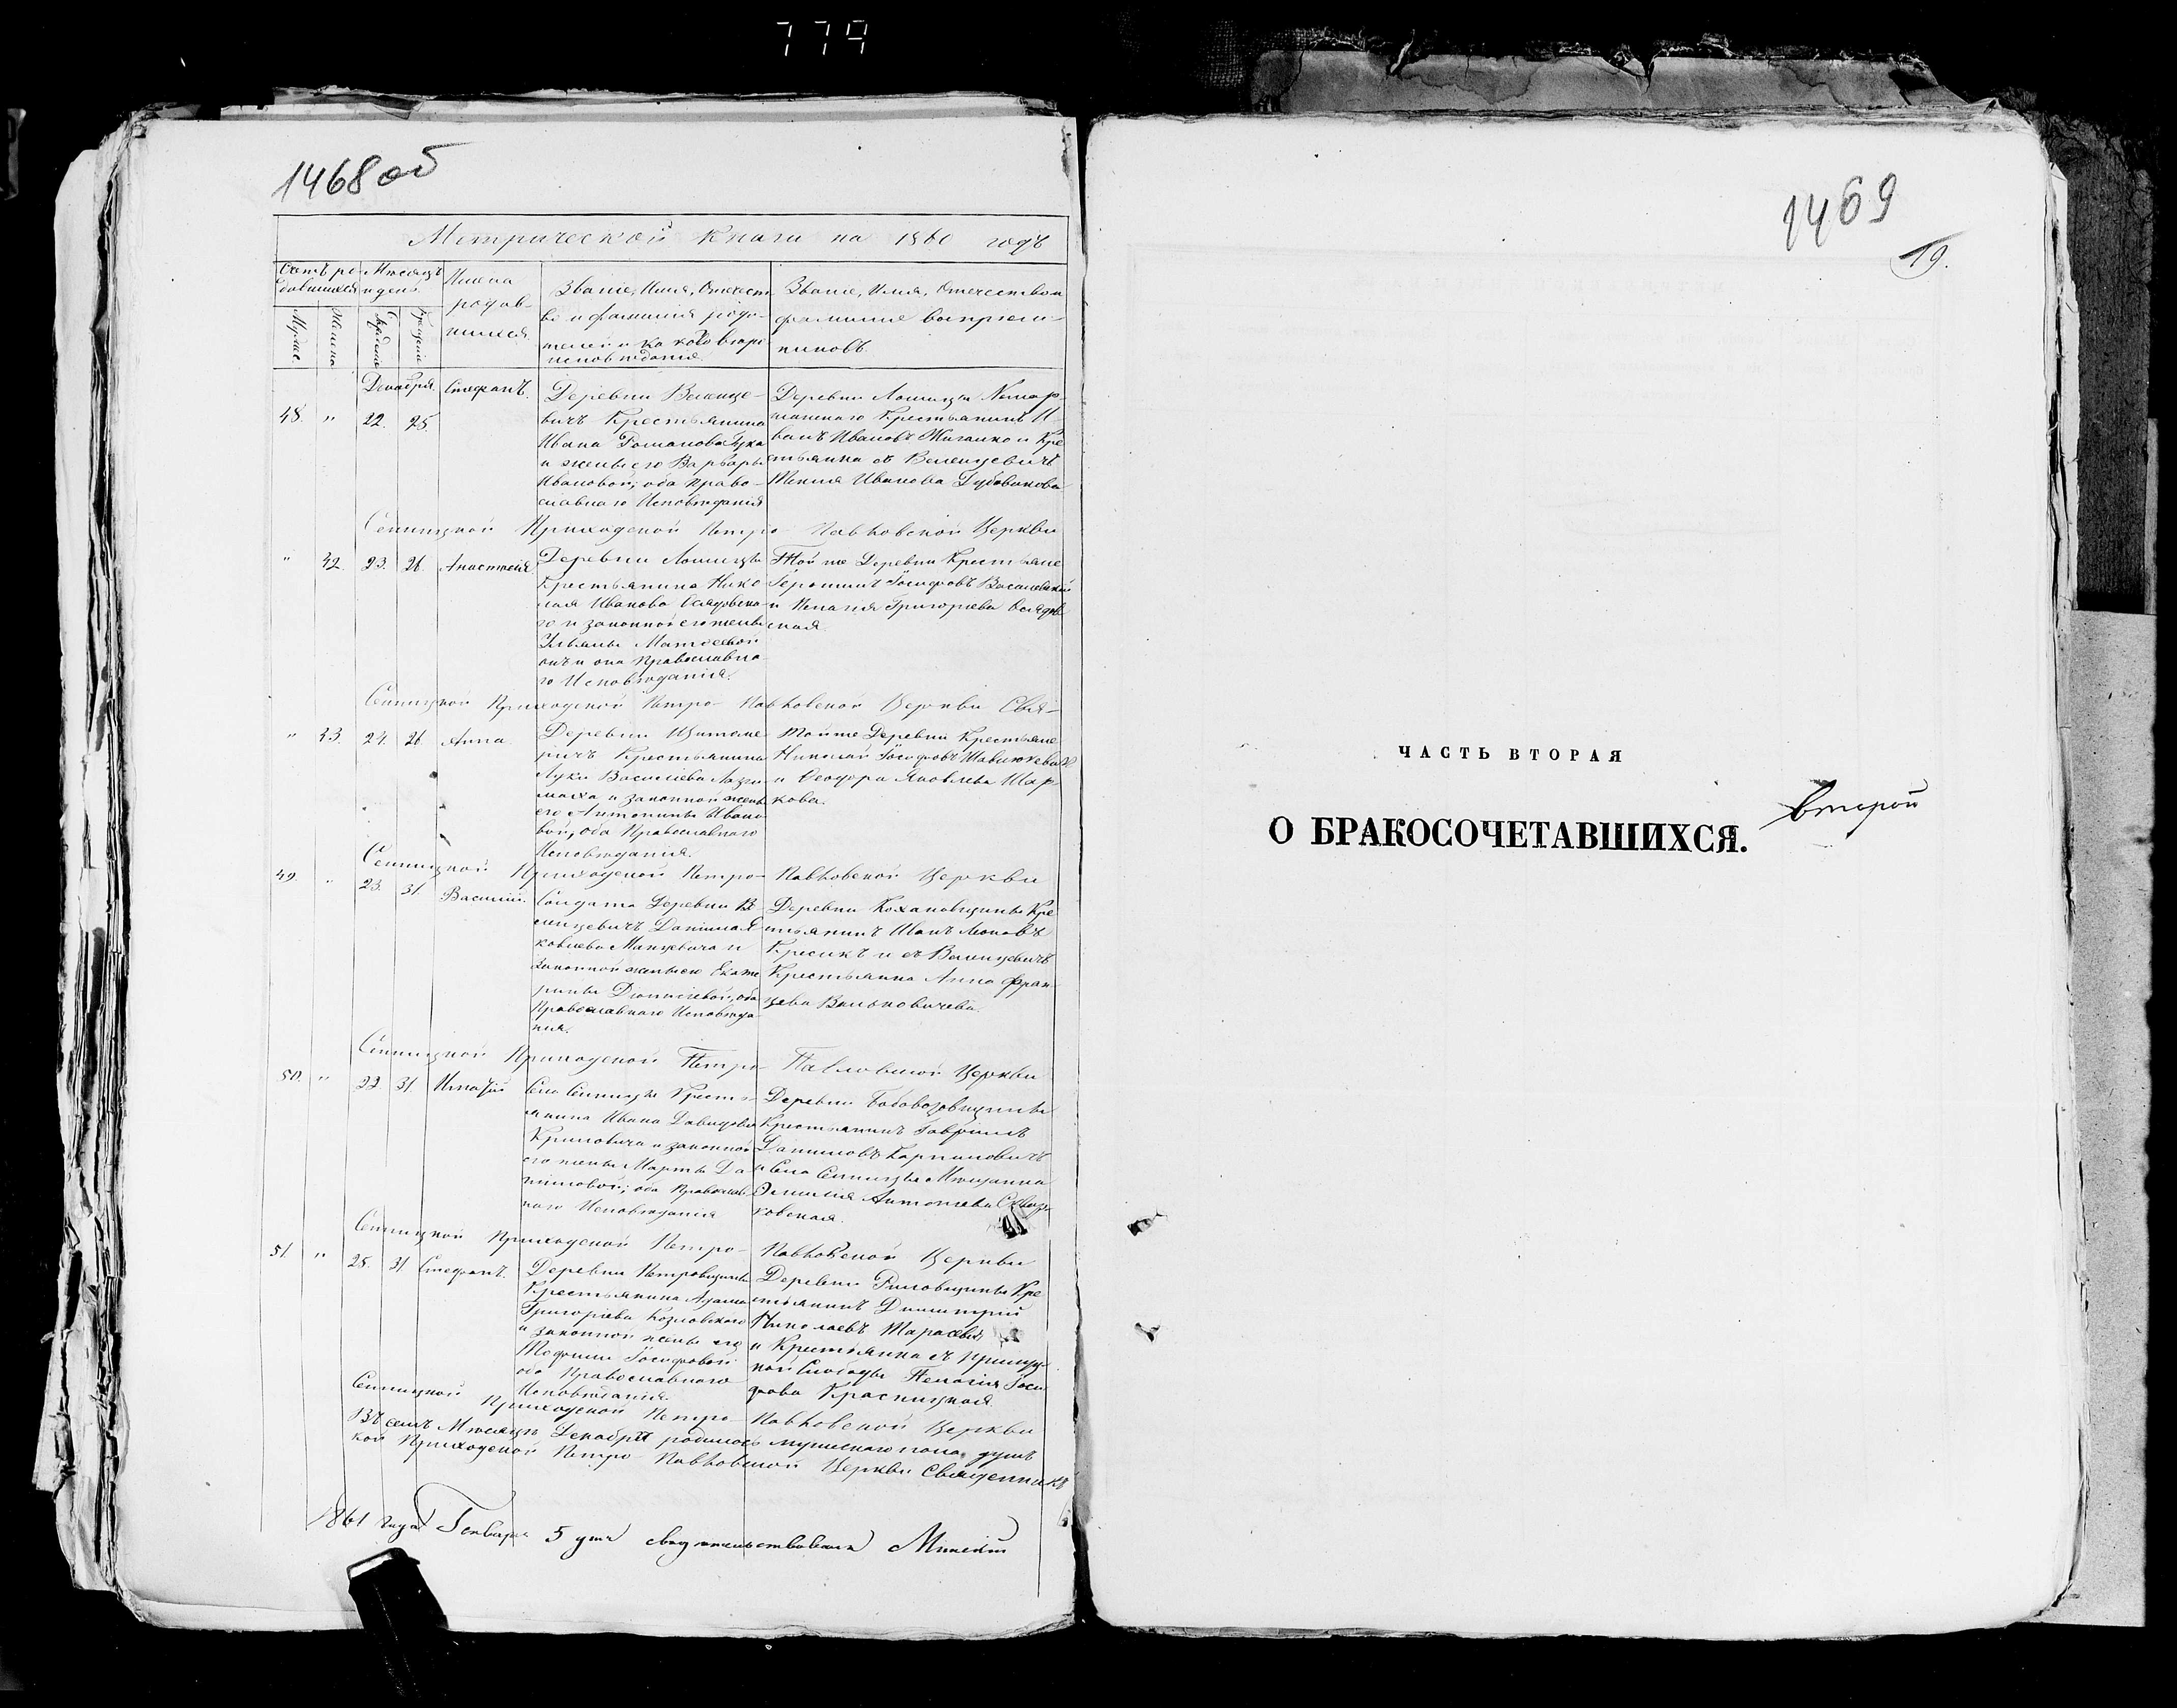 779
1468 об
Метрической Книги на 1860 годъ
Счетъ ро-
дившихся
Мѣсяцъ
и день
Имена
родив-
шихся.
Званіе, Имя, Отечест-
во и фамилія роди-
телей и какого вѣро-
исповѣданія.
Званіе, Имя, Отечество и
фамилія воспріем-
никовъ.
Мужес.
Женска
Рожденія
Крещенія
Декабря
48. " 22. 25. Стефанъ.
Деревни Велице-
вичъ Крестьянина
Ивана Романова
и жены его Варвары
Ивановой; оба право-
славнаго Исповѣданія
Деревни Лошицы
Крестьянинъ И-
ванъ Ивановъ Жиганко и Кре
стьянка съ Велицевичъ
Текля Иванова
Сеницкой Приходской Петро-Павловской Церкви
" 42. 23. 26. Анастасія
Деревни Лошицы
Крестьянина Нико-
лая Иванова Осядовска-
го и законной его жены
Ульяны Матвеевой
онъ и она Православна-
го Исповѣданія.
Той же Деревни Крестьяне
Іеронимъ Іосифовъ Василевскій
и Пелагія Григорьева Осядов
ская
Сеницкой Приходской Петро-Павловской Церкви Свя-
" 43. 24. 26. Анна
Деревни
Крестьянина
Луки Васильева
и законной жены
его Антонины Ивано-
вой, оба Православнаго
Исповѣданія.
Той же Деревни Крестьяне
Николай Іосифовъ
и Ѳеодора Яковлева Шар-
кова.
Сеницкой Приходской Петро-Павловской Церкви
49. " 23. 31. Василій.
Солдата Деревни Ве
лицевичъ Даніила Я
ковлева Манцевича и
Законной жены его Екате
рины Діонисіевой, оба
Православнаго Исповѣда-
нія.
Деревни Кохановщины Кре
стьянинъ Иванъ
и съ Велицевичъ
Крестьянка Анна Фран-
цева Вильковичева.
Сеницкой Приходской Петро-Павловской Церкви
50. " 22. 31. Игнатій
Села Сеницы Кресть-
янина Ивана Давидова
и законной
его жены Марты Да
ниловой; оба Православ-
наго Исповѣданія
Деревни Бабовозовщины
Крестьянинъ Гавріилъ
Даниловъ Карпиловичъ
и Села Сеницы Мѣщанка
Эмилія Антонева
ковская.
Сеницкой Приходской Петро-Павловской Церкви
51. " 25. 31. Стефанъ.
Деревни Петровщины
Крестьянина Адама
Григоріева Козловскаго
и законной жены его
Іосифовой
оба Православнаго
Исповѣданія.
Деревни
Кре
стьянинъ Димитрій
Николаевъ Тарасевичъ
и Крестьянка съ
кой Слободы Пелагія Іоси-
фова Красницкая
Сеницкой Приходской Петро-Павловской Церкви
Въ семъ Мѣсяцѣ Декабрѣ родилось мужескаго пола душъ
кой Приходской Петро Павловской Церкви Священникъ
1861 года Генваря 5 дня свидѣтельствовалъ Минскій
1469
19.
ЧАСТЬ ВТОРАЯ
второй
О БРАКОСОЧЕТАВШИХСЯ.